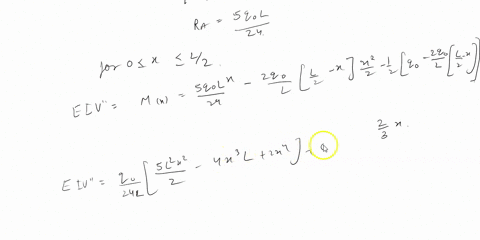 R_A = 5q₀L / 24
for 0 ≤ x ≤ L/2.
EIV" = M(x) = 5q₀Lx / 24 - 2q₀/L [L/2 - x] x²/2 - 1/2 [q₀ - 2q₀/L [L/2 - x]]
2/3 x.
EIV" = q₀/24L [5L²x²/2 - 4x³L + 2x⁴] -